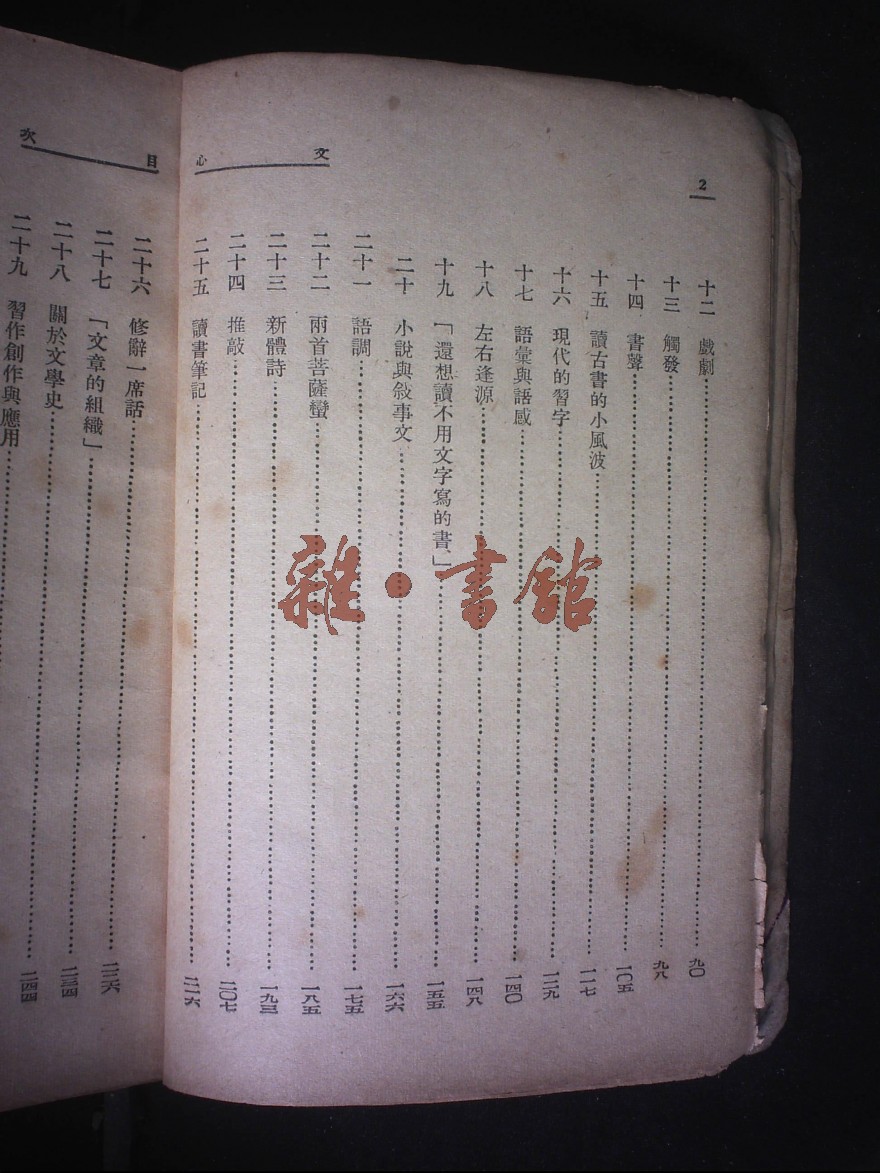 2
文心
十二　戲劇……九〇
十三　觸發……九八
十四　書聲……一〇五
十五　讀古書的小風波……一一七
十六　現代的習字……一二九
十七　語彙與語感……一四〇
十八　左右逢源……一四八
十九　「還想讀不用文字寫的書」……一五五
二十　小說與敍事文……一六六
二十一　語調……一七五
二十二　兩首菩薩蠻……一八五
二十三　新體詩……一九三
二十四　推敲……二〇七
二十五　讀書筆記……二一六
目次
二十六　修辭一席話……二二六
二十七　「文章的組織」……二三四
二十八　關於文學史……二四四
二十九　習作創作與應用……
雜·書館